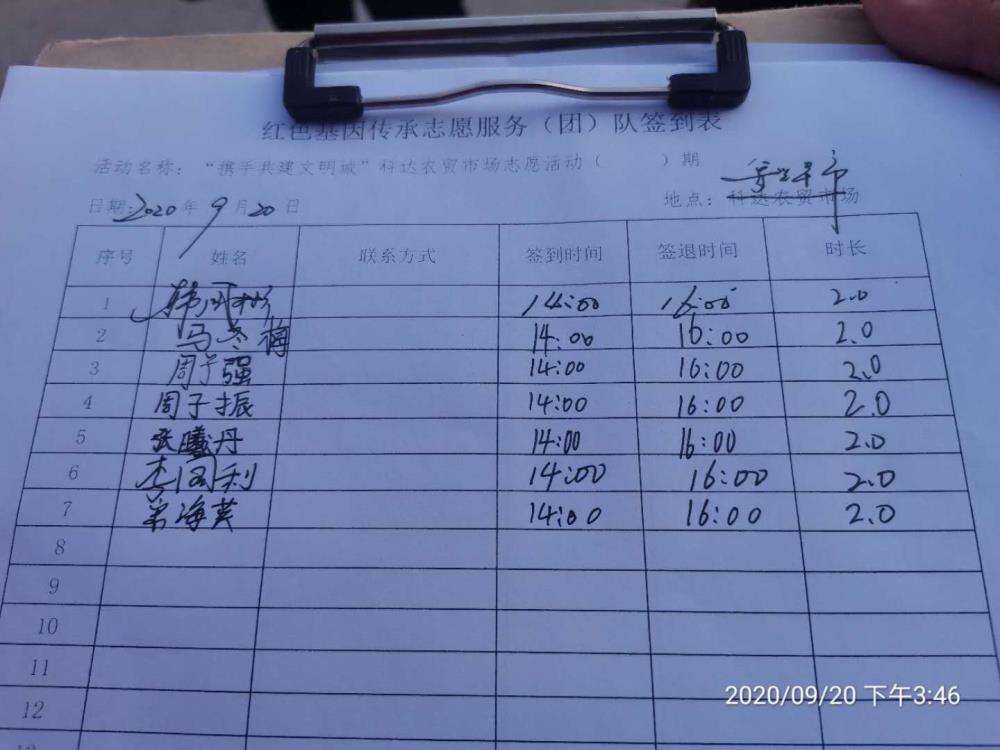 红色基因传承志愿服务（团）队签到表
活动名称：“携手共建文明城”科达农贸市场志愿活动（ ）期
日期：2020年9月20日 地点：科达农贸市场
序号 姓名 联系方式 签到时间 签退时间 时长
1 14:00 16:00 2.0
2 马冬梅 14:00 16:00 2.0
3 周子强 14:00 16:00 2.0
4 周子振 14:00 16:00 2.0
5 张曦丹 14:00 16:00 2.0
6 李国利 14:00 16:00 2.0
7 海英 14:00 16:00 2.0
8
9
10
11
12
2020/09/20 下午3:46